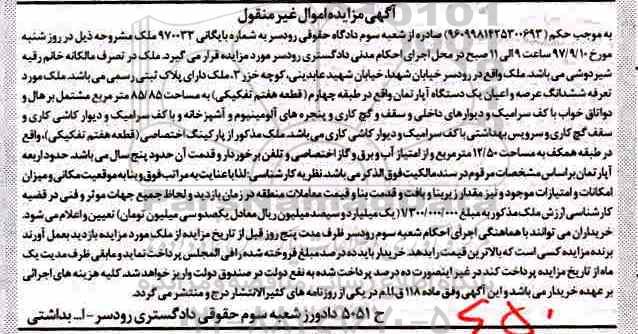 آگهی مزایده اموال غیر منقول
به موجب حکم (۹۶۰۹۹۸۱۴۲۵۳۰۰۶۹۳) صادره از شعبه سوم دادگاه حقوقی رودسر به شماره بایگانی ۹۷۰۰۳۲ ملک مشروحه ذیل در روز شنبه
مورخ ۹۷/۹/۱۰ ساعت ۹ الی ۱۱ صبح در محل اجرای احکام مدنی دادگستری رودسر مورد مزایده قرار می گیرد. ملک در تصرف مالکانه خانم رقیه
شیردوشی می باشد. ملک واقع در رودسر خیابان شهدا، خیابان شهید عابدینی، کوچه خزر ۳. ملک دارای پلاک ثبتی رسمی می باشد. ملک مورد
تعرفه ششدانگ عرصه و اعیان یک دستگاه آپارتمان واقع در طبقه چهارم (قطعه هفتم تفکیکی) به مساحت ۸۵/۸۵ متر مربع مشتمل بر هال و
دو اتاق خواب با کف سرامیک و دیوارهای داخلی و سقف و گچ کاری و پنجره های آلومینیوم و آشپزخانه و با کف سرامیک و دیوار کاشی کاری و
سقف گچ کاری و سرویس بهداشتی با کف سرامیک و دیوار کاشی کاری می باشد. ملک مذکور از پارکینگ اختصاصی (قطعه هفتم تفکیکی)، واقع
در طبقه همکف به مساحت ۱۲/۵۰ متر مربع و از امتیاز آب و برق و گاز اختصاصی و تلفن برخوردار و قدمت آن حدود پنج سال می باشد. حدود اربعه
آپارتمان بر اساس مشخصات مرقوم در سند مالکیت فوق الذکر می باشد. نظریه کارشناسی: لذا با عنایت به مراتب فوق و بنا به موقعیت مکانی و میزان
امکانات و امتیازات موجود و نیز مقدار زیربنا و بافت و قدمت بنا و قیمت معاملات منطقه در زمان بازدید و لحاظ جمیع جهات موثر و فنی در قضیه
کارشناسی ارزش ملک مذکور به مبلغ ۱/۳۰۰/۰۰۰/۰۰۰ (یک میلیارد و سیصد میلیون ریال معادل یکصد و سی میلیون تومان) تعیین و اعلام می شود.
خریداران می توانند با هماهنگی اجرای احکام شعبه سوم رودسر ظرف مدت پنج روز قبل از تاریخ مزایده از ملک مورد مزایده بازدید بعمل آورند
برنده مزایده کسی است که بالاترین قیمت را بدهد. خریدار باید ده درصد مبلغ فروخته شده را فی المجلس پرداخت نماید و مابقی ظرف مدت یک
ماه از تاریخ مزایده پرداخت کند در غیر اینصورت ده درصد پرداخت شده به نفع دولت در صندوق دولت واریز خواهد شد. کلیه هزینه های اجرائی
بر عهده خریدار می باشد و این آگهی وفق ماده ۱۱۸ ق.ا.م در یکی از روزنامه های کثیرالانتشار درج و منتشر می گردد.
ح ۵۰۵۱ دادورز شعبه سوم حقوقی دادگستری رودسر - ا... بداشتی